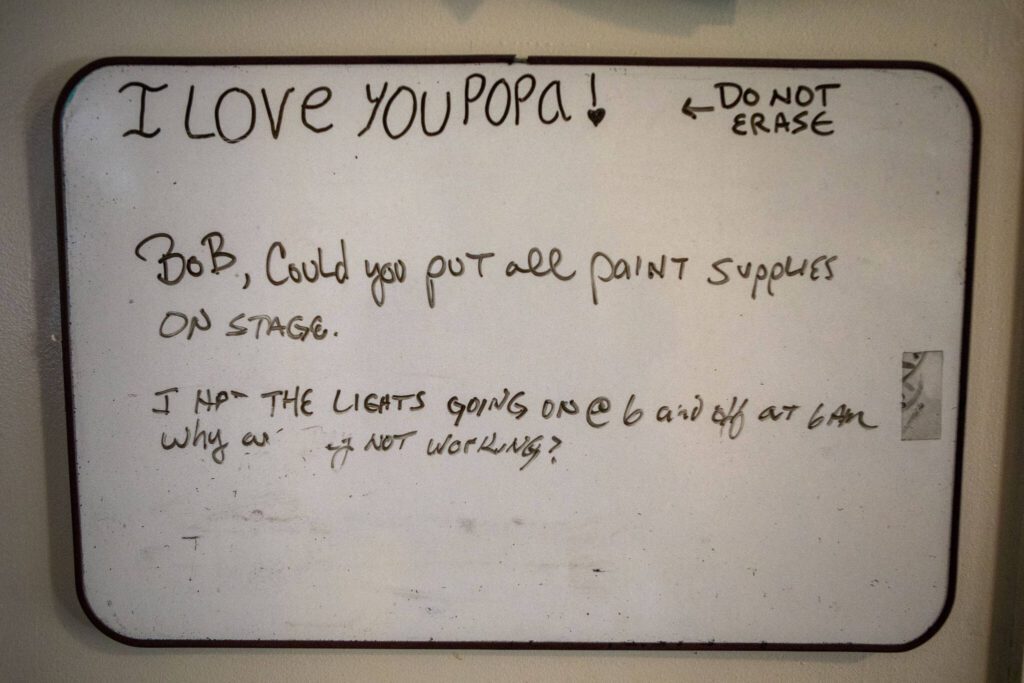 I LOVE YOU POPA!
← DO NOT
ERASE
BOB, Could you put all paint supplies
ON STAGE.
I THE LIGHTS GOING ON @ 6 and off at 6 AM
why NOT WORKING?